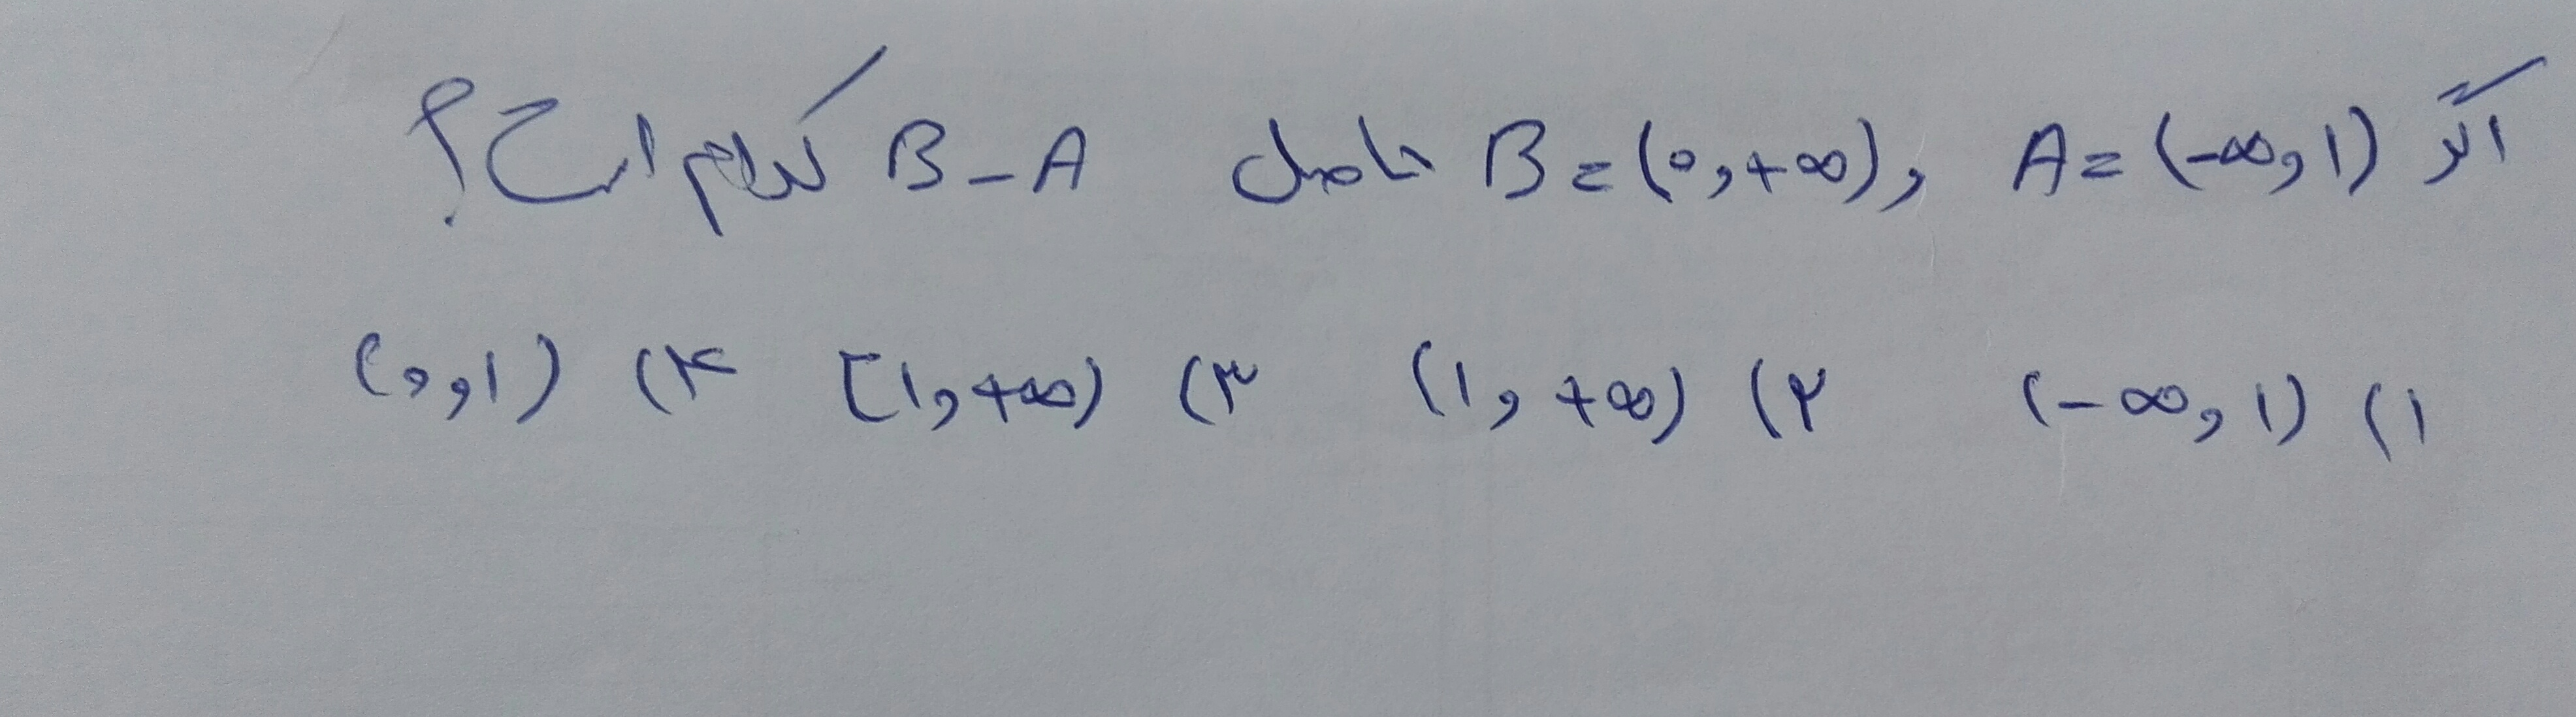 اگر A = (-∞, 1) و B = (0, +∞) حاصل B - A کدام است؟
۱) (-∞, 1) ۲) (1, +∞) ۳) [1, +∞) ۴) (0, 1)